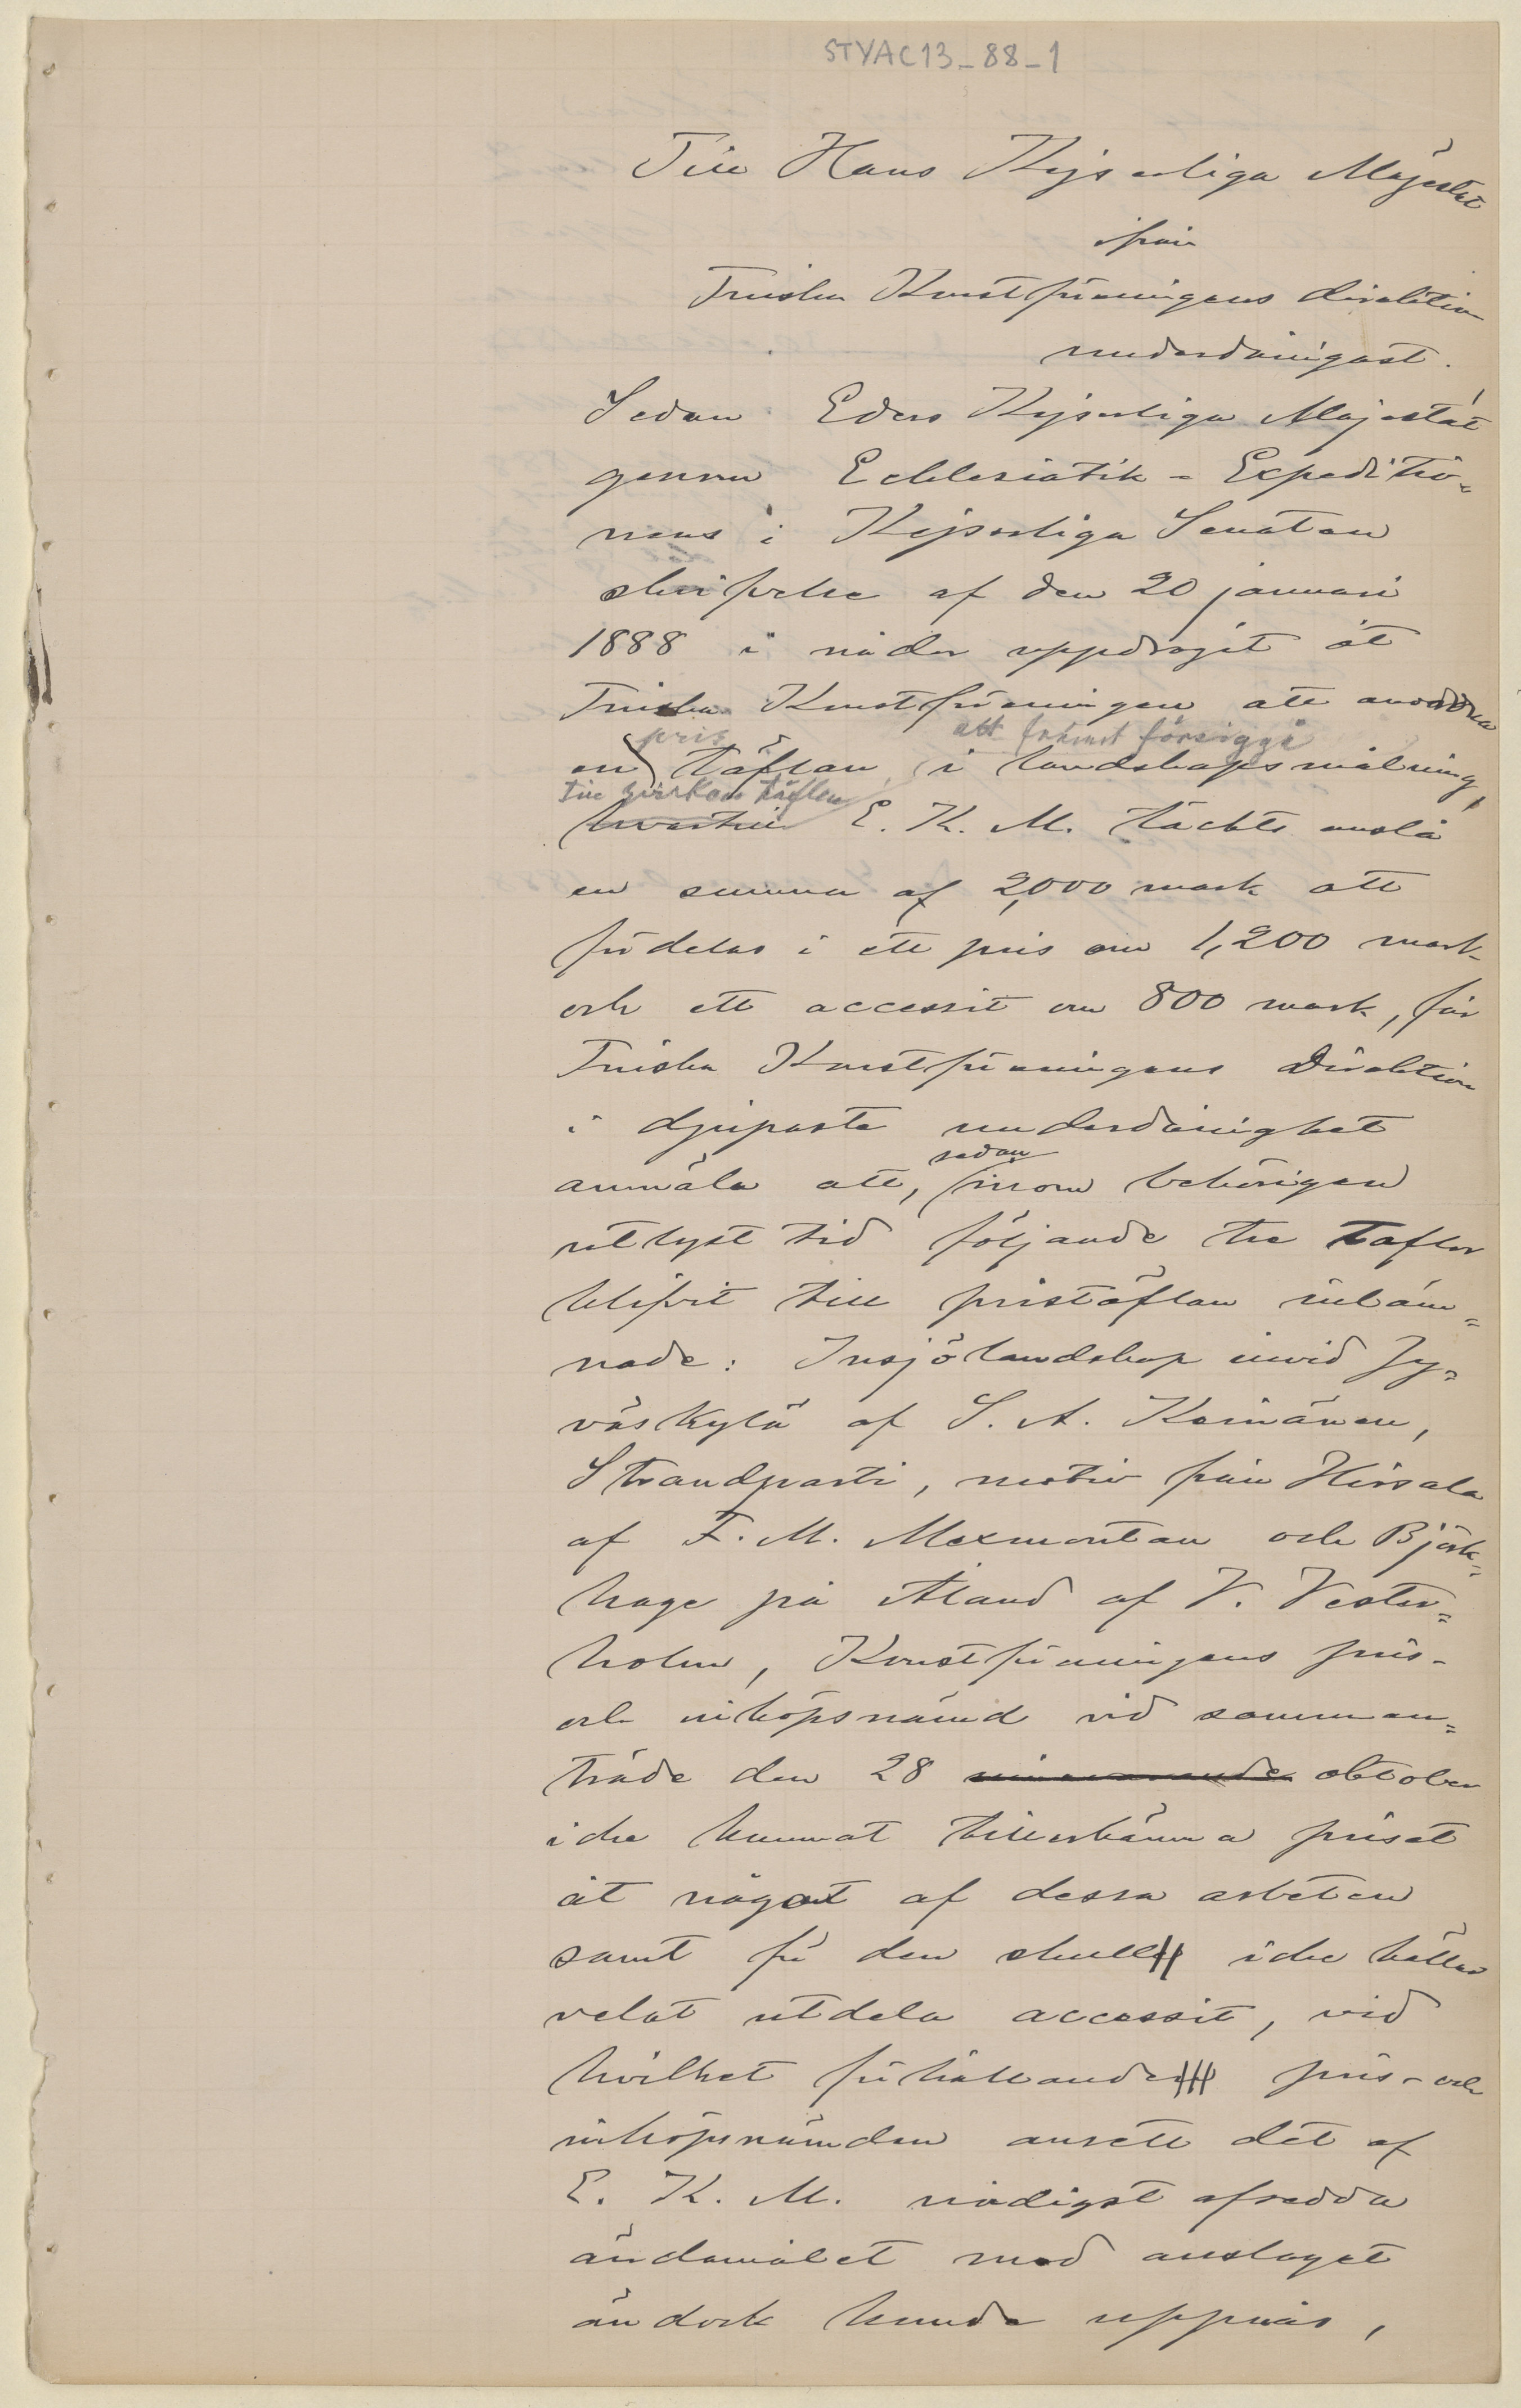 STYAC13_88_1
Till Hans Kejserliga Majestät
från
Finska Konstföreningens direktion
underdånigast.
Sedan Eders Kejserliga Majestät
genom Ecklesiatik-Expeditio-
nens i Kejserliga Senaten
skrifvelse af den 20 januari
1888 i nåder uppdragit åt
Finska Konstföreningen att anordna
pris att främst försiggå
en täflan i landskapsmålning,
till hvilken täflan
hvartill E. K. M. täckts anslå
en summa af 2,000 mark att
fördelas i ett pris om 1,200 mark
och ett accessit om 800 mark, får
Finska Konstföreningens Direktion
i djupaste underdånighet
sedan
anmäla att, inom behörigen
utlyst tid följande tre taflor
blifvit till pristäflan inläm-
nade: Insjölandskap invid Jy-
väskylä af S. A. Keinänen,
Strandparti, motiv från Hirsala
af F. M. Mexmontan och Björk-
hage på Åland af V. Vester-
holm, Konstföreningens pris-
och inköpsnämd vid samman-
träde den 28 innevarande oktober
icke kunnat tillerkänna priset
åt någat af dessa arbeten
samt för den skull icke häller
velat utdela accessit, vid
hvilket förhållande pris- och
inköpsnämden ansett det af
E. K. M. nådigst afsedda
ändamålet med anslaget
ändock kunde uppnås,